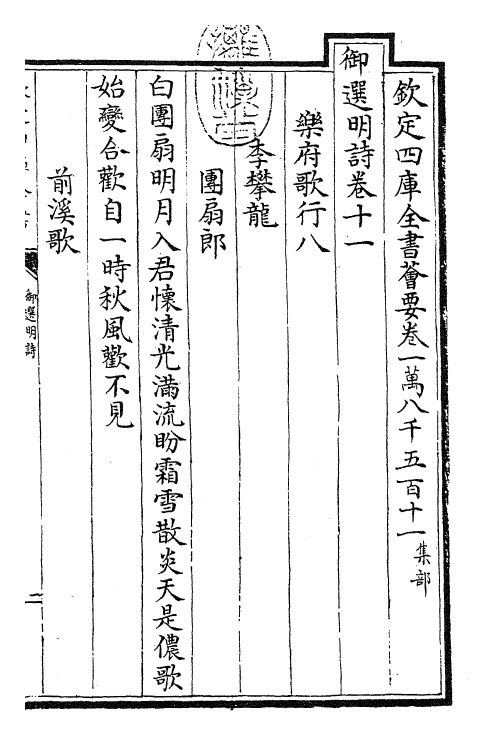 欽定四庫全書薈要卷一萬八千五百十一集部
御選明詩卷十一
樂府歌行八
李攀龍
團扇郎
白團扇明月入君懷清光滿流盼霜雪散炎天是儂歌
始變合歡自一時秋風歡不見
前溪歌
御選明詩